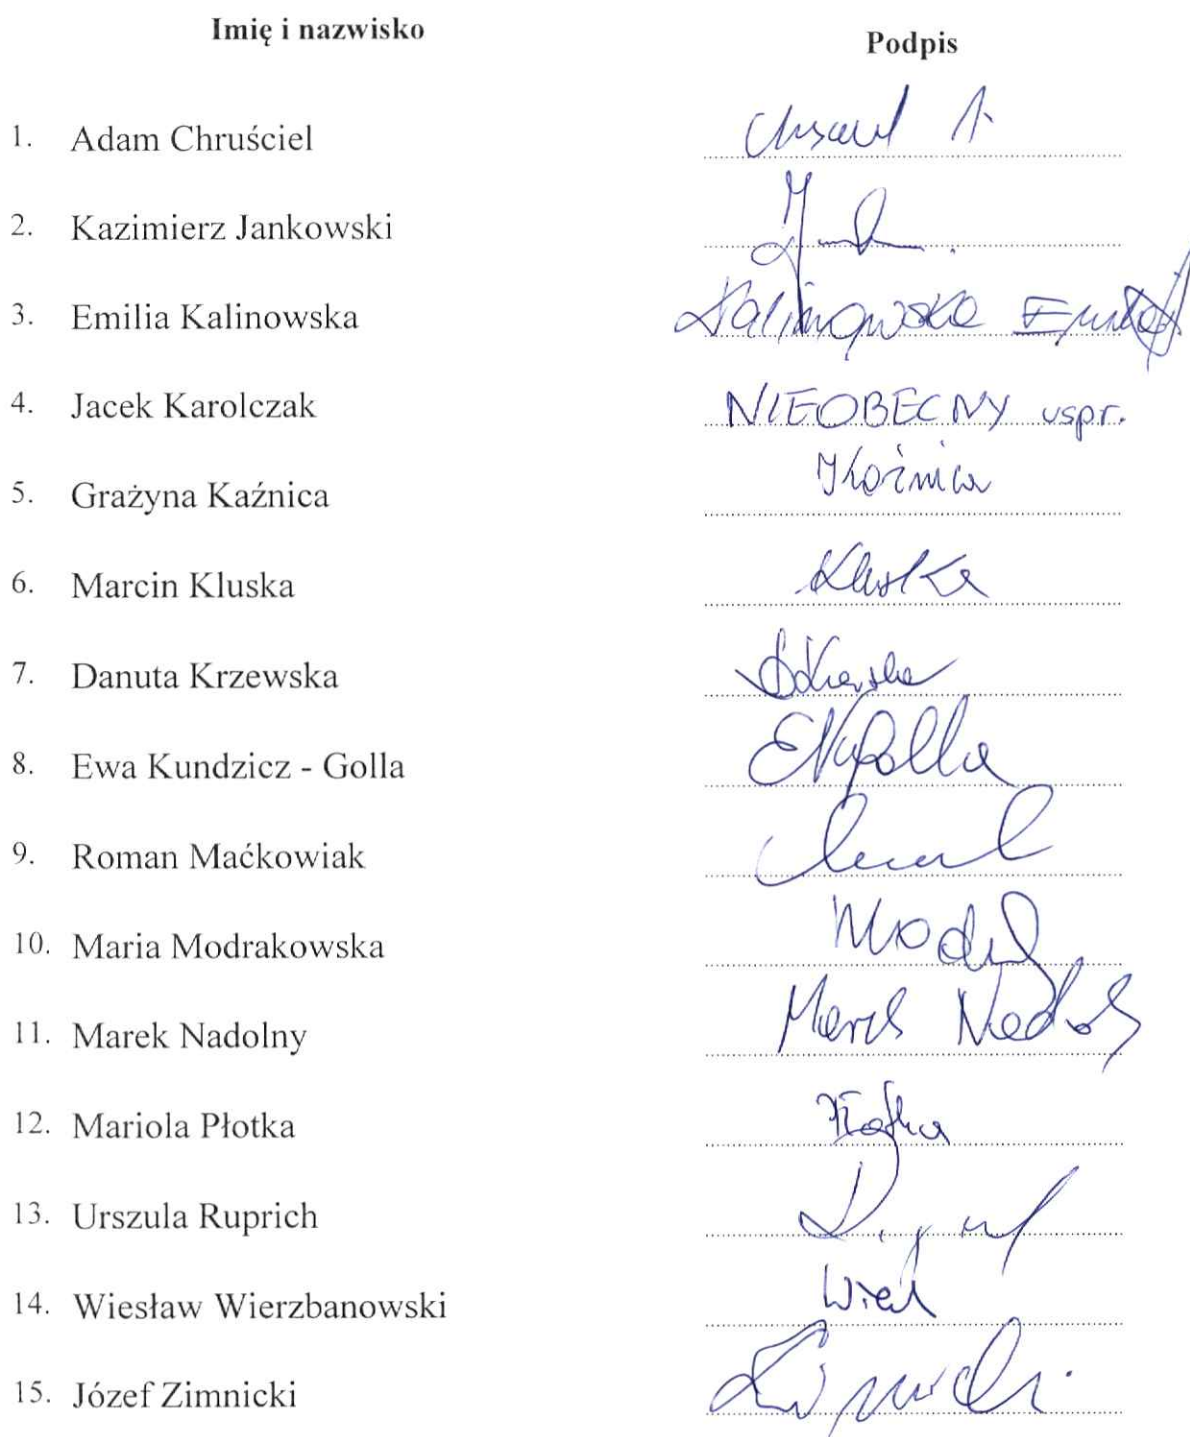 Imię i nazwisko Podpis
1. Adam Chruściel
2. Kazimierz Jankowski
3. Emilia Kalinowska Kalinowska Emilia
4. Jacek Karolczak NIEOBECNY uspr.
5. Grażyna Kaźnica Kaźnica
6. Marcin Kluska Kluska
7. Danuta Krzewska
8. Ewa Kundzicz - Golla
9. Roman Maćkowiak
10. Maria Modrakowska
11. Marek Nadolny Marek
12. Mariola Płotka Płotka
13. Urszula Ruprich
14. Wiesław Wierzbanowski
15. Józef Zimnicki